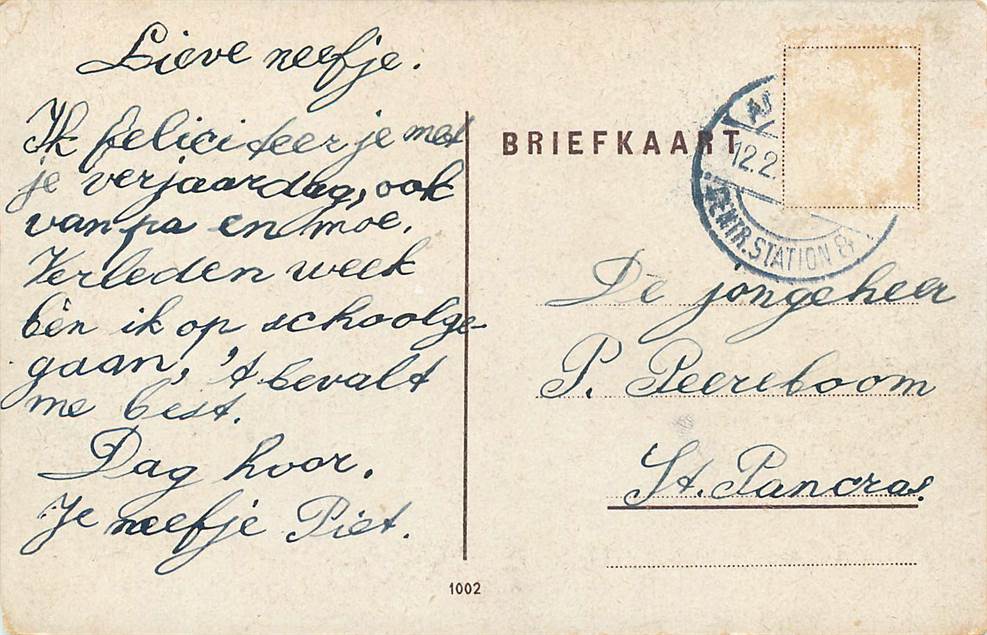 Lieve neefje.
Ik feliciteer je met
je verjaardag, ook
van pa en moe.
Verleden week
ben ik op schoolge-
gaan, 't bevalt
me best.
Dag hoor.
Je neefje Piet.
BRIEFKAART
12.2
CENTR. STATION 8
De jongeheer
P. Peereboom
St. Pancras.
1002